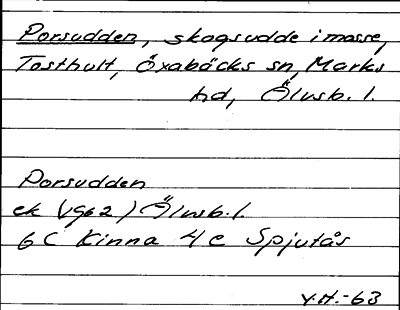 Porsudden, skogsudde i mosse,
Tosthult, Öxabäcks sn, Marks
hd, Älvsb. l.
Porsudden
ek (1962) Älvsb. l.
6 C Kinna 4 e Spjutås
Y.H.-63